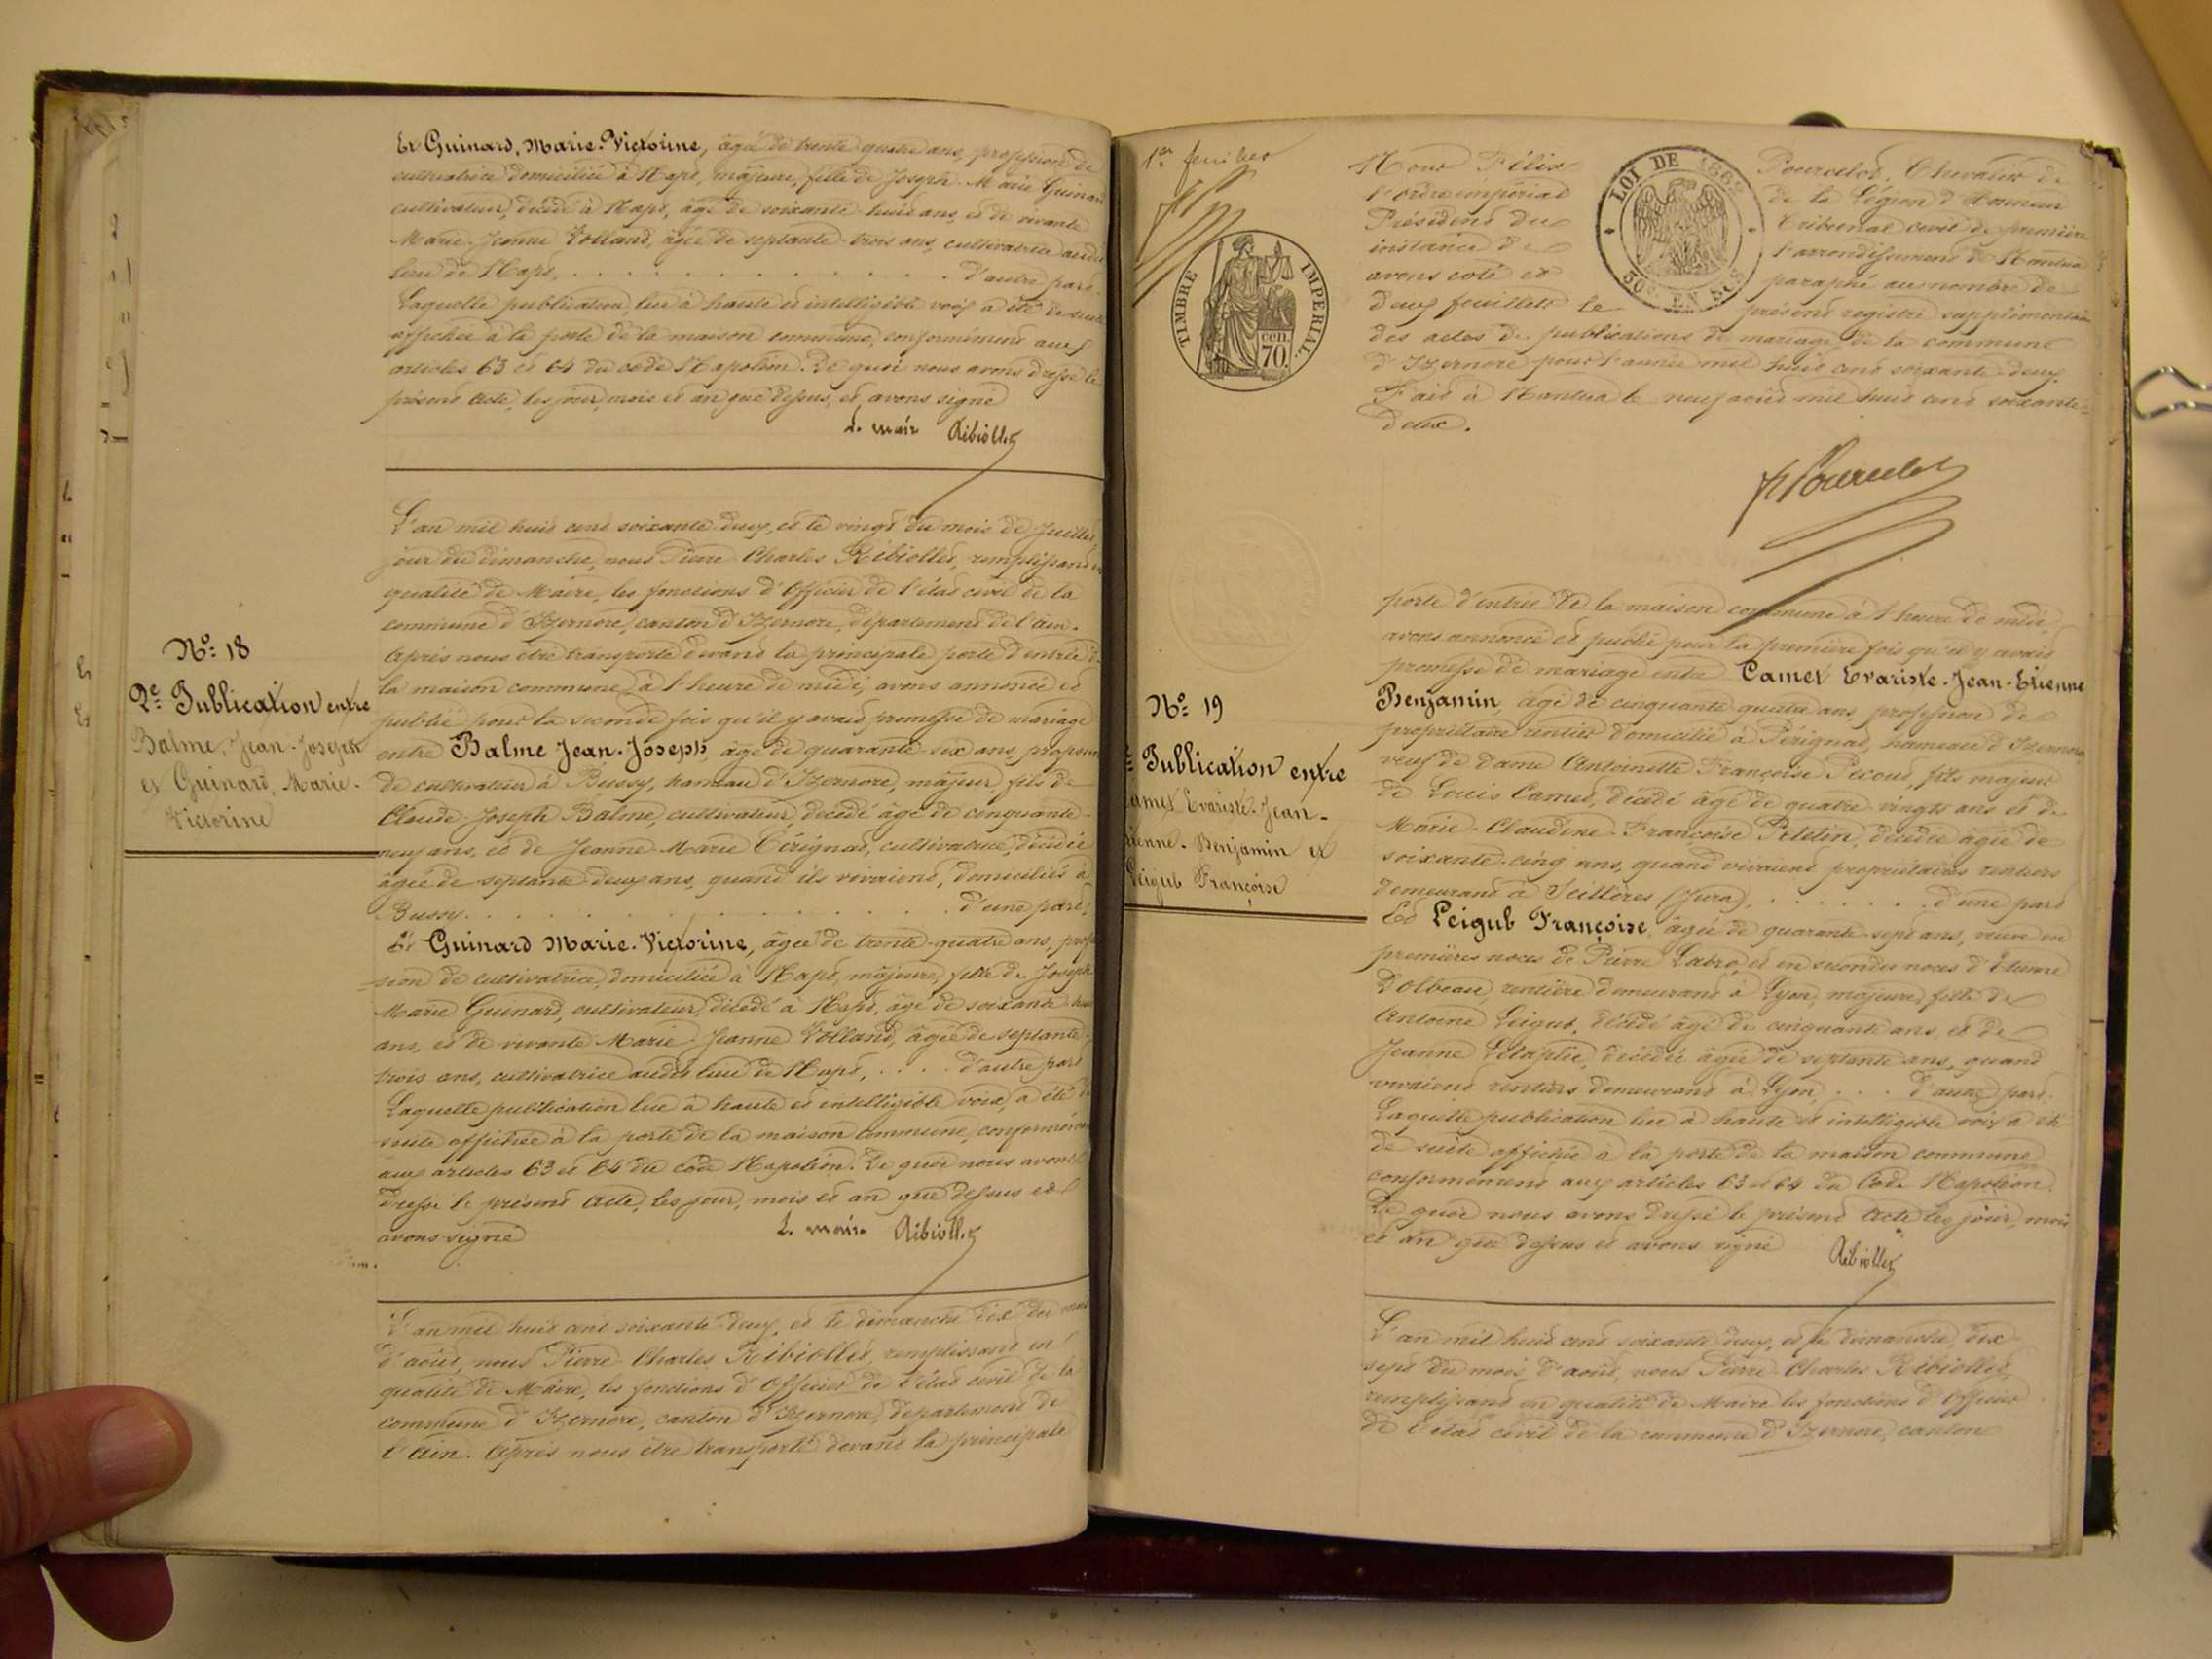 Et Guinard, Marie-Victorine, âgée de trente-quatre ans, profession de
cultivatrice domiciliée à Napt, majeure, fille de Joseph-Marie Guinard
cultivateur, décédé à Napt, âgé de soixante-huit ans, et de vivante
Marie-Jeanne Volland, âgée de septante-trois ans, cultivatrice audit
lieu de Napt, . . . . . . . . . . . . . . d'autre part.
Laquelle publication, lue à haute et intelligible voix a été de suite
affichée à la porte de la maison commune, conformément aux
articles 63 et 64 du code Napoléon. De quoi nous avons dressé le
présent acte, les jour, mois et an que dessus, et avons signé
Le maire Ribiollet
N° 18
2e Publication entre
Balme, Jean-Joseph
et Guinard, Marie-
Victorine
L'an mil huit cent soixante-deux, et le vingt du mois de Juillet,
jour du dimanche, nous Pierre-Charles Ribiollet, remplissant en
qualité de Maire, les fonctions d'Officier de l'état civil de la
commune d'Izernore, canton d'Izernore, département de l'Ain.
Après nous être transporté devant la principale porte d'entrée de
la maison commune, à l'heure de midi, avons annoncé et
publié pour la seconde fois qu'il y avait promesse de mariage
entre Balme Jean-Joseph, âgé de quarante-six ans, profession
de cultivateur à Bussy, hameau d'Izernore, majeur, fils de
Claude-Joseph Balme, cultivateur, décédé âgé de cinquante-
neuf ans, et de Jeanne-Marie Cérignat, cultivatrice, décédée
âgée de septante-deux ans, quand ils vivaient, domiciliés à
Bussy. . . . . . . . . . . . . . . . d'une part;
Et Guinard Marie-Victorine, âgée de trente-quatre ans, profes
sion de cultivatrice, domiciliée à Napt, majeure, fille de Joseph
Marie Guinard, cultivateur, décédé à Napt, âgé de soixante-huit
ans, et de vivante Marie-Jeanne Volland, âgée de septante-
trois ans, cultivatrice audit lieu de Napt, . . . . d'autre part
Laquelle publication lue à haute et intelligible voix, a été de
suite affichée à la porte de la maison commune, conformément
aux articles 63 et 64 du code Napoléon. De quoi nous avons
dressé le présent acte, les jour, mois et an que dessus et
avons signé Le maire Ribiollet
L'an mil huit cent soixante-deux, et le dimanche dix du mois
d'août, nous Pierre-Charles Ribiollet, remplissant en
qualité de Maire, les fonctions d'Officier de l'état civil de la
commune d'Izernore, canton d'Izernore, département de
l'Ain. Après nous être transporté devant la principale
1er feuillet
TIMBRE IMPERIAL.
cen. 70.
LOI DE 1862
50c. EN SUS
Nous Félix Pourcelot, Chevalier de
l'Ordre impérial de la Légion d'Honneur
Président du Tribunal civil de première
instance de l'arrondissement de Nantua
avons coté et paraphé au nombre de
deux feuillets le présent registre supplémentaire
des actes de publications de mariage de la commune
d'Izernore pour l'année mil huit cent soixante-deux.
Fait à Nantua le neuf août mil huit cent soixante-
deux.
Pourcelot
N° 19
Publication entre
Camet Evariste-Jean-
Etienne-Benjamin et
Leigub Françoise
porte d'entrée de la maison commune à l'heure de midi,
avons annoncé et publié pour la première fois qu'il y avait
promesse de mariage entre Camet Evariste-Jean-Etienne
Benjamin, âgé de cinquante-quatre ans, profession de
propriétaire rentier domicilié à Pérignat, hameau d'Izernore
veuf de dame Antoinette Françoise Picoud, fils majeur
de Louis Camet, décédé âgé de quatre-vingts ans et de
Marie-Claudine-Françoise Petetin, décédée âgée de
soixante-cinq ans, quand vivaient propriétaires rentiers
demeurant à Seillères (Jura), . . . . . . . d'une part
Et Leigub Françoise, âgée de quarante-sept ans, veuve en
premières noces de Pierre Labro, et en secondes noces d'Etienne
Dolbeau, rentière demeurant à Lyon, majeure, fille de
Antoine Leigub, décédé âgé de cinquante ans et de
Jeanne, décédée âgée de septante ans, quand
vivaient rentiers demeurant à Lyon . . . d'autre part.
Laquelle publication lue à haute et intelligible voix a été
de suite affichée à la porte de la maison commune
conformément aux articles 63 et 64 du Code Napoléon.
De quoi nous avons dressé le présent acte les jour, mois
et an que dessus et avons signé Ribiollet
L'an mil huit cent soixante-deux, et le dimanche, dix-
sept du mois d'août, nous Pierre-Charles Ribiollet,
remplissant en qualité de Maire les fonctions d'Officier
de l'état civil de la commune d'Izernore, canton